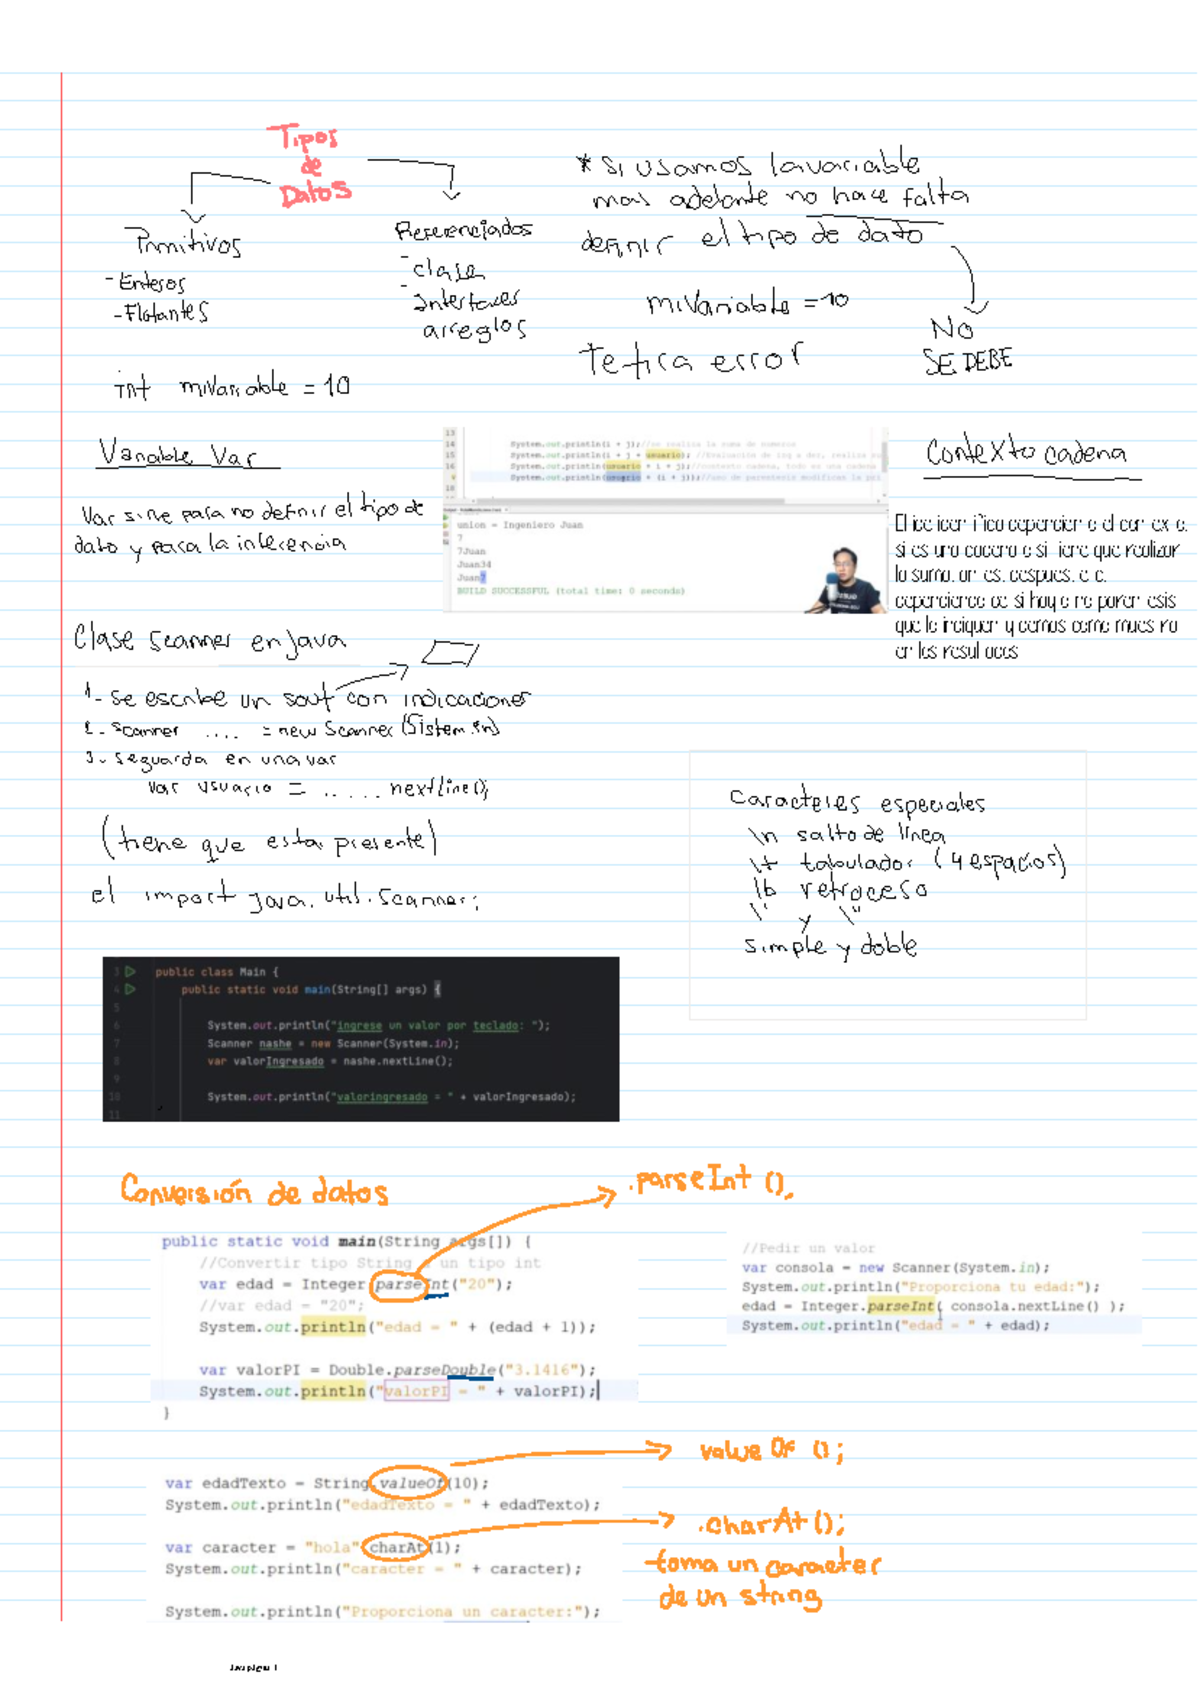 Tipos
de
Datos
Primitivos
- Enteros
- Flotantes
int miVariable = 10
Referenciados
- clase
- Interfaces
arreglos
* Si usamos la variable
mas adelante no hace falta
definir el tipo de dato
miVariable = 10
Te tira error
NO
SE DEBE
Variable Var
Var sirve para no definir el tipo de
dato y para la inferencia
13
14 System.out.println(i + j);//se realiza la suma de numeros
15 System.out.println(i + j + usuario); //Evaluación de izq a der, realiza su
16 System.out.println(usuario + i + j);//contexto cadena, todo es una cadena
System.out.println(usuario + (i + j));//uso de parentesis modifican la
18
union = Ingeniero Juan
7
7Juan
Juan34
Juan7
BUILD SUCCESSFUL (total time: 0 seconds)
Contexto cadena
si es una cadena o si tiene que realizar
que lo indiquen y demas como muestra
en los resultados
Clase Scanner en java
1- Se escribe un sout con indicaciones
2- Scanner .... = new Scanner (Sistem.in)
3- se guarda en una var
var usuario = ...... nextLine();
(tiene que estar presente)
el import java.util.Scanner;
Caracteres especiales
\n salto de línea
\t tabulador (4 espacios)
\b retroceso
\' y \"
simple y doble
3 public class Main {
4 public static void main(String[] args) {
5
6 System.out.println("ingrese un valor por teclado: ");
7 Scanner nashe = new Scanner(System.in);
8 var valorIngresado = nashe.nextLine();
9
10 System.out.println("valoringresado = " + valorIngresado);
11
Conversión de datos
.parseInt ();
public static void main(String args[]) {
//Convertir tipo String a un tipo int
var edad = Integer.parseInt("20");
//var edad = "20";
System.out.println("edad = " + (edad + 1));
var valorPI = Double.parseDouble("3.1416");
System.out.println("valorPI = " + valorPI);
}
//Pedir un valor
var consola = new Scanner(System.in);
System.out.println("Proporciona tu edad:");
edad = Integer.parseInt( consola.nextLine() );
System.out.println("edad = " + edad);
valueOf ();
var edadTexto = String.valueOf(10);
System.out.println("edadTexto = " + edadTexto);
var caracter = "hola".charAt(1);
System.out.println("caracter = " + caracter);
System.out.println("Proporciona un caracter:");
.charAt();
toma un caracter
de un string